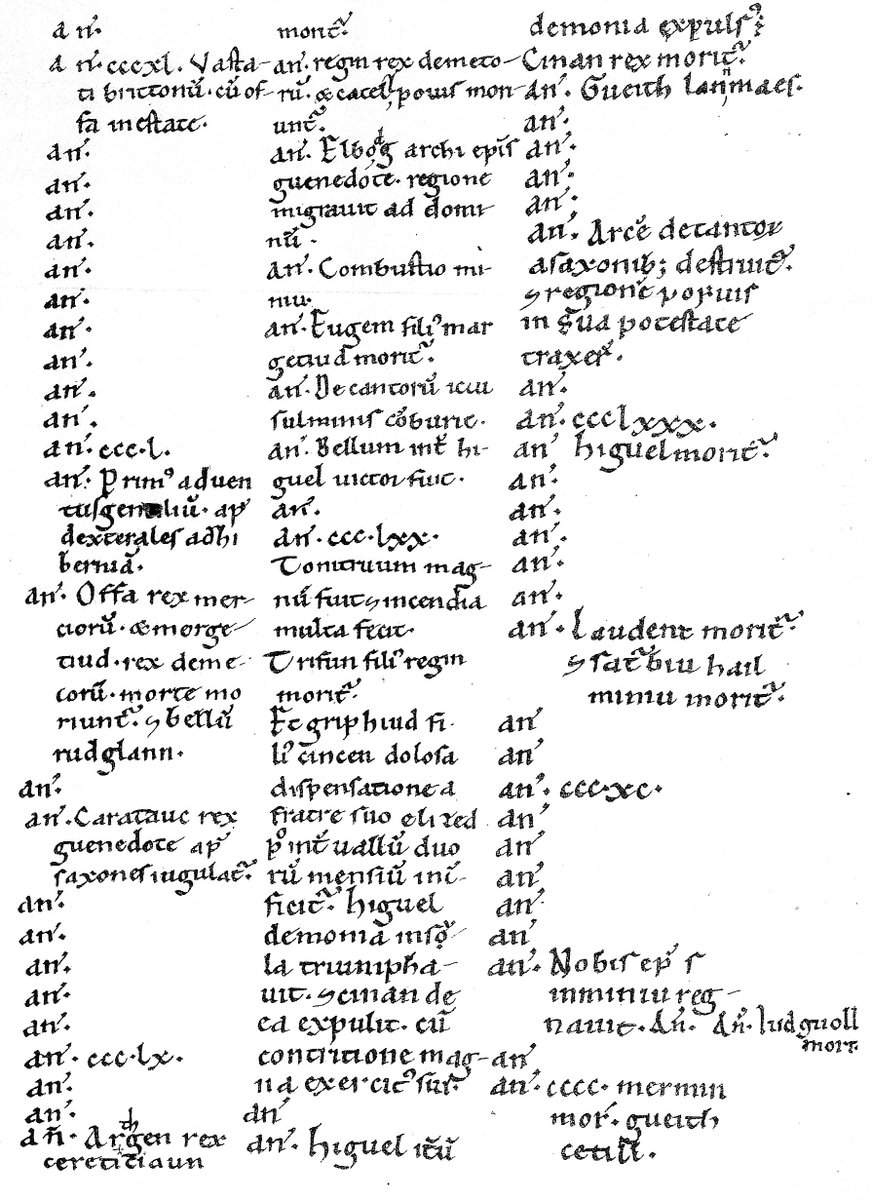 an̄.
an̄. cccxl. Vasta-
ti brittonū. cū of-
fa in estate.
an̄.
an̄.
an̄.
an̄.
an̄.
an̄.
an̄.
an̄.
an̄.
an̄.
an̄. ccc.l.
an̄. Primꝰ aduen
tus gentiliū. ap̄
dexterales ad hi
berniā.
an̄. Offa rex mer-
ciorū. & morge-
tiud. rex deme-
torū. morte mo
riunt᷑. ⁊ bellū
rudglann.
an̄.
an̄. Caratauc rex
guenedote ap̄
saxones iugulat᷑.
an̄.
an̄.
an̄.
an̄.
an̄.
an̄. ccc.lx.
an̄.
an̄.
an̄. Arthgen rex
cereticiaun
morit᷑.
an̄. regin rex demeto-
rū. & catell, pouis mori-
unt᷑.
an̄. Elbodg archi ep̄is
guenedote. regione
migrauit ad domi-
nū.
an̄. Combustio mi-
niu.
an̄. Eugem filiꝰ mar
getiud morit᷑.
an̄. Decantorū ictu
fulminis cōburit᷑.
an̄. Bellum int̄ hi-
guel uictor fuit.
an̄.
an̄. ccc.lxx.
Tonitruum mag-
nū fuit ⁊ incendia
multa fecit.
Trifun filiꝰ regin
morit᷑.
Et griphiud fi-
liꝰ cincen dolosa
dispensatione a
fratre suo elized
pꝰ int̄uallū duo
rū mensiū int̄-
ficit᷑. higuel
demonia insꝰ
la triumpha-
uit. ⁊ cinan de
ea expulit. cū
contritione mag-
na exercitꝰ sui.
an̄
an̄. higuel itꝰū
demonia expulsꝰ:
Cinan rex morit᷑.
an̄. Gueith lannmaes.
an̄.
an̄.
an̄.
an̄.
an̄. Arcē detantor
a saxonib; destruit᷑.
⁊ regionē poyuis
in sua potestate
traxer̄.
an̄.
an̄. ccclxxx.
an̄ higuel morit᷑.
an̄.
an̄.
an̄.
an̄.
an̄.
an̄. Laudent morit᷑.
⁊ sat᷑biu hail
miniu morit᷑.
an̄
an̄
an̄. ccc.xc.
an̄
an̄
an̄
an̄
an̄
an̄. Nobis ep̄ s
in miniu reg-
nauit. An̄. An̄. Iudguoll
mort.
an̄
an̄. cccc. mermin
mor̄. gueith
cetill.